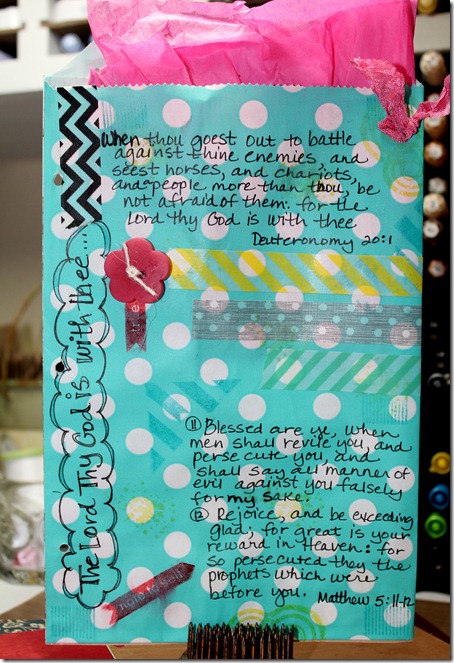 When thou goest out to battle
against thine enemies, and
seest horses, and chariots,
and people more than thou, be
not afraid of them: for the
Lord thy God is with thee
Deuteronomy 20:1
The Lord Thy God is with thee...
⑪ Blessed are ye, when
men shall revile you, and
persecute you, and
shall say all manner of
evil against you falsely
for my sake.
⑫ Rejoice, and be exceeding
glad; for great is your
reward in Heaven: for
so persecuted they the
prophets which were
before you. Matthew 5:11-12
note to self